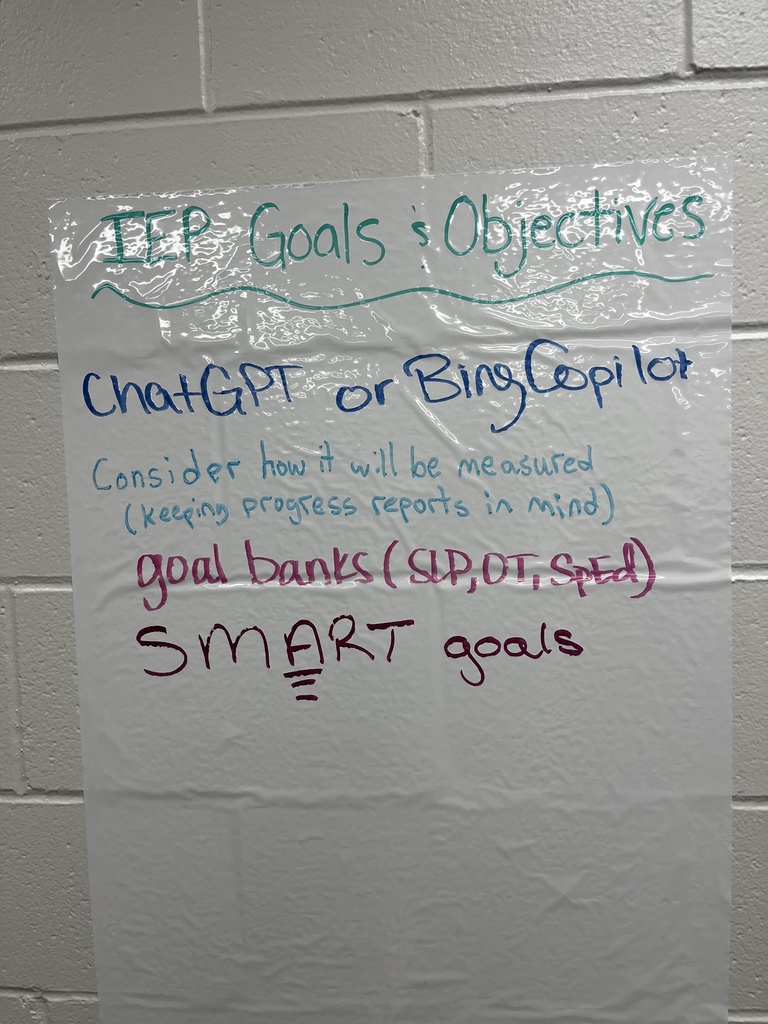 IEP Goals & Objectives
ChatGPT or Bing Copilot
Consider how it will be measured
(keeping progress reports in mind)
goal banks (SLP, OT, SpEd)
SMART goals